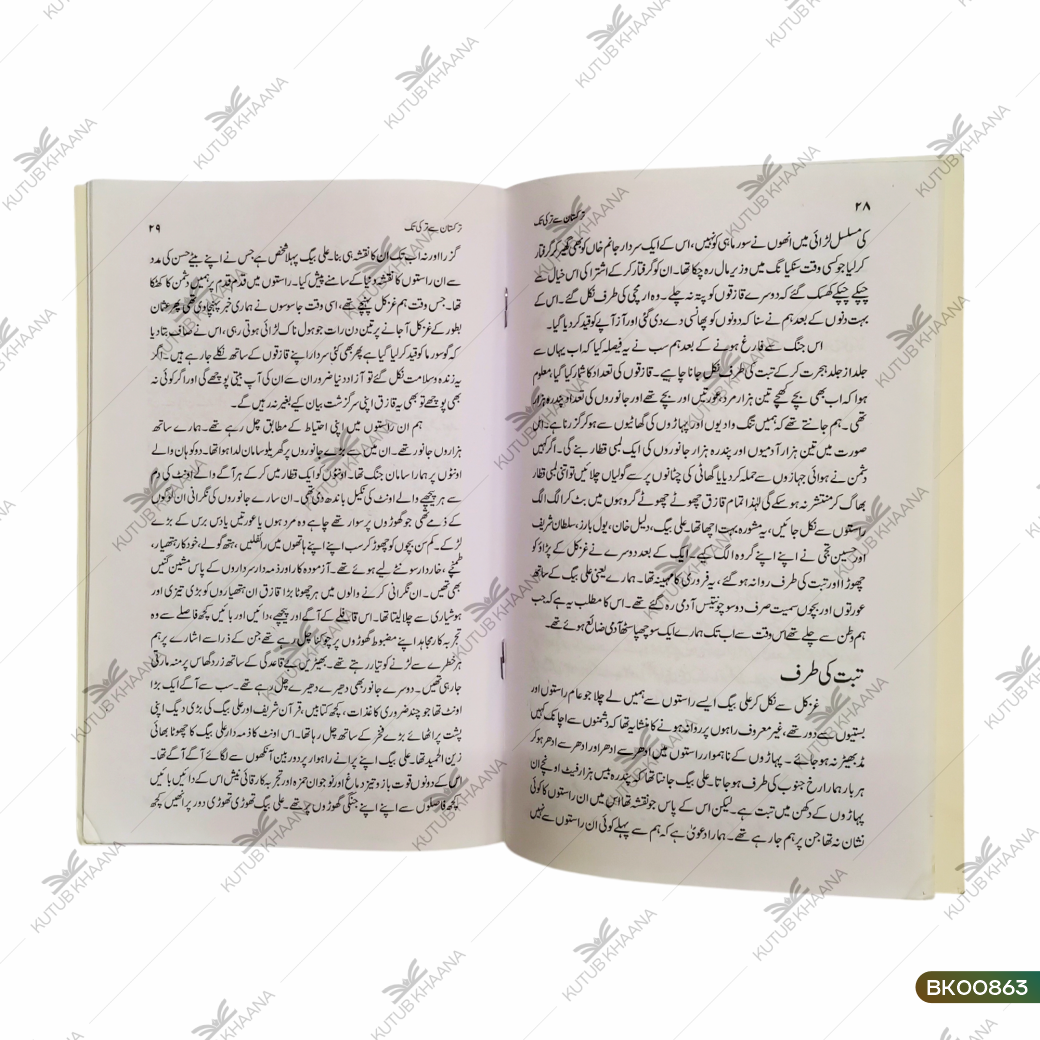 ۲۸
ترکستان سے ترکی تک
کی مسلسل لڑائی میں انھوں نے سور ماہی کو نہیں، اس کے ایک سردار جانم خاں کو بھی گھیر کر گرفتار
کر لیا جو کسی وقت سنکیانگ میں وزیر مال رہ چکا تھا۔ ان کو گرفتار کر کے اشتراکی اس خیال سے
چپکے چپکے کھسک گئے کہ دوسرے قازقوں کو پتہ نہ چلے۔ وہ ارمچی کی طرف نکل گئے۔ اس کے
بہت دنوں کے بعد ہم نے سنا کہ دونوں کو پھانسی دے دی گئی اور آز آپے کو قید کر دیا گیا۔
اس جنگ سے فارغ ہونے کے بعد ہم سب نے یہ فیصلہ کیا کہ اب یہاں سے
جلد از جلد ہجرت کر کے تبت کی طرف نکل جانا چاہیے۔ قازقوں کی تعداد کا شمار کیا گیا، معلوم
ہوا کہ اب بھی بچے کھچے تین ہزار مرد، عورتیں اور بچے تھے اور جانوروں کی تعداد پندرہ ہزار
تھی۔ ہم جانتے تھے کہ ہمیں تنگ وادیوں اور پہاڑوں کی گھاٹیوں سے ہو کر گزرنا ہے۔ اس
صورت میں تین ہزار آدمیوں اور پندرہ ہزار جانوروں کی ایک لمبی قطار بنے گی۔ اگر کہیں
دشمن نے ہوائی جہازوں سے حملہ کر دیا یا گھاٹی کی چٹانوں پر سے گولیاں چلائیں تو اتنی لمبی قطار
بھاگ کر منتشر نہ ہو سکے گی لہٰذا تمام قازق چھوٹے چھوٹے گروہوں میں بٹ کر الگ الگ
راستوں سے نکل جائیں، یہ مشورہ بہت اچھا تھا۔ علی بیگ، دلیل خان، یول بارز، سلطان شریف
اور حسین تجی نے اپنے اپنے گروہ الگ کیے۔ ایک کے بعد دوسرے نے غزکل کے پڑاؤ کو
چھوڑا اور تبت کی طرف روانہ ہو گئے، یہ فروری کا مہینہ تھا۔ ہمارے یعنی علی بیگ کے ساتھ
عورتوں اور بچوں سمیت صرف دو سو چونتیس آدمی رہ گئے تھے۔ اس کا مطلب یہ ہے کہ جب
ہم وطن سے چلے تھے اس وقت سے اب تک ہمارے ایک سو چھیاسٹھ آدمی ضائع ہوئے تھے۔
تبت کی طرف
غزکل سے نکل کر علی بیگ ایسے راستوں سے ہمیں لے چلا جو عام راستوں اور
بستیوں سے دور تھے، غیر معروف راہوں پر روانہ ہونے کا منشا یہ تھا کہ دشمنوں سے اچانک کہیں
مڈبھیڑ نہ ہو جائے۔ پہاڑوں کے ناہموار راستوں میں ادھر سے ادھر اور ادھر سے ادھر ہو کر
ہر بار ہمارا رخ جنوب کی طرف ہو جاتا۔ علی بیگ جانتا تھا کہ پندرہ بیس ہزار فیٹ اونچے ان
پہاڑوں کے دکھن میں تبت ہے۔ لیکن اس کے پاس جو نقشہ تھا اس میں ان راستوں کا کوئی
نشان نہ تھا جن پر ہم جا رہے تھے۔ ہمارا دعویٰ ہے کہ ہم سے پہلے کوئی ان راستوں سے نہیں
ترکستان سے ترکی تک
۲۹
گزرا اور نہ اب تک ان کا نقشہ ہی بنا۔ علی بیگ پہلا شخص ہے جس نے اپنے بیٹے حسن کی مدد
سے ان راستوں کا نقشہ دنیا کے سامنے پیش کیا۔ راستوں میں قدم قدم پر ہمیں دشمن کا کھٹکا
تھا۔ جس وقت ہم غزکل پہنچے تھے، اسی وقت جاسوسوں نے ہماری خبر پہنچا دی تھی پھر عثمان
بطور کے غزکل آ جانے پر تین دن رات جو ہول ناک لڑائی ہوتی رہی، اس نے صاف بتا دیا
کہ گو سورما کو قید کر لیا گیا ہے پھر بھی کئی سردار اپنے قازقوں کے ساتھ نکلے جا رہے ہیں۔ اگر
یہ زندہ و سلامت نکل گئے تو آزاد دنیا ضرور ان سے ان کی آپ بیتی پوچھے گی اور اگر کوئی نہ
بھی پوچھے تو بھی یہ قازق اپنی سرگزشت بیان کیے بغیر نہ رہیں گے۔
ہم ان راستوں میں اپنی احتیاط کے مطابق چل رہے تھے۔ ہمارے ساتھ
ہزاروں جانور تھے۔ ان میں سے بڑے جانوروں پر گھریلو سامان لدا ہوا تھا۔ دو کوہان والے
اونٹوں پر ہمارا سامان جنگ تھا۔ اونٹوں کو ایک قطار میں کر کے ہر آگے والے اونٹ کی دم
سے ہر پیچھے والے اونٹ کی نکیل باندھ دی تھی۔ ان سارے جانوروں کی نگرانی ان لوگوں
کے ذمے تھی جو گھوڑوں پر سوار تھے چاہے وہ مرد ہوں یا عورتیں یا دس برس کے بڑے
لڑکے۔ کم سن بچوں کو چھوڑ کر سب اپنے اپنے ہاتھوں میں رائفلیں، ہتھ گولے، خودکار ہتھیار،
طمنچے، خاردار سونٹے لیے ہوئے تھے۔ آزمودہ کار اور ذمہ دار سرداروں کے پاس مشین گنیں
بھی تھیں۔ ان نگرانی کرنے والوں میں ہر چھوٹا بڑا قازق ان ہتھیاروں کو بڑی تیزی اور
ہوشیاری سے چلا لیتا تھا۔ اس قافلے کے آگے اور پیچھے، دائیں اور بائیں کچھ فاصلے سے وہ
تجربہ کار مجاہد اپنے مضبوط گھوڑوں پر چوکنا چل رہے تھے جن کے ذرا سے اشارے پر ہم
ہر خطرے سے لڑنے کو تیار رہتے تھے۔ بھیڑیں بے قاعدگی کے ساتھ زرد گھاس پر منہ مارتی
جا رہی تھیں۔ دوسرے جانور بھی دھیرے دھیرے چل رہے تھے۔ سب سے آگے ایک بڑا
اونٹ تھا جو چند ضروری کاغذات، کچھ کتابیں، قرآن شریف اور علی بیگ کی بڑی دیگ اپنی
پشت پر اٹھائے بڑے فخر کے ساتھ چل رہا تھا۔ اس اونٹ کا ذمہ دار علی بیگ کا چھوٹا بھائی
زین الحمید تھا۔ علی بیگ اپنے پرانے راہوار پر دوربین آنکھوں سے لگائے آگے آگے تھا۔
اس کے دونوں قوت بازو تیز دماغ اور نوجوان حمزہ اور تجربہ کار قائی نیش اس کے دائیں بائیں
کچھ فاصلوں سے اپنے اپنے جنگی گھوڑوں پر تھے۔ علی بیگ تھوڑی تھوڑی دور پر انھیں کچھ
KUTUB KHAANA
BK00863